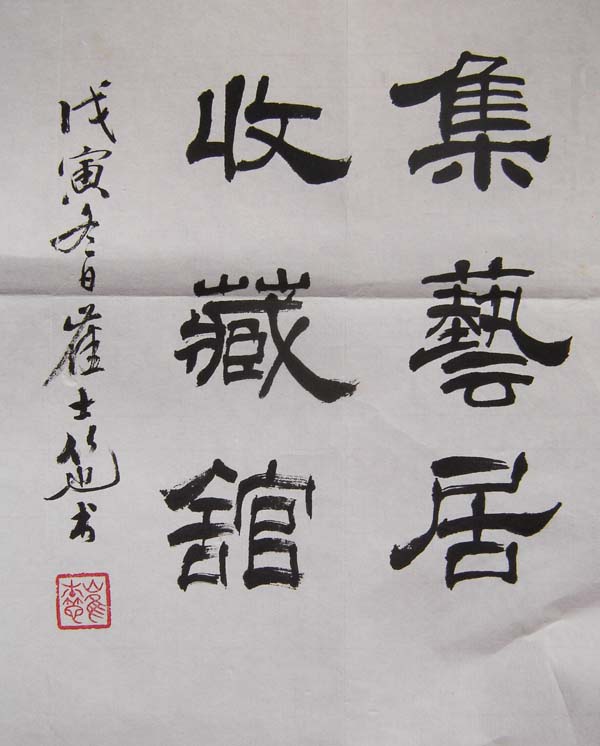 集藝居
收藏舘
戊寅冬日崔士书